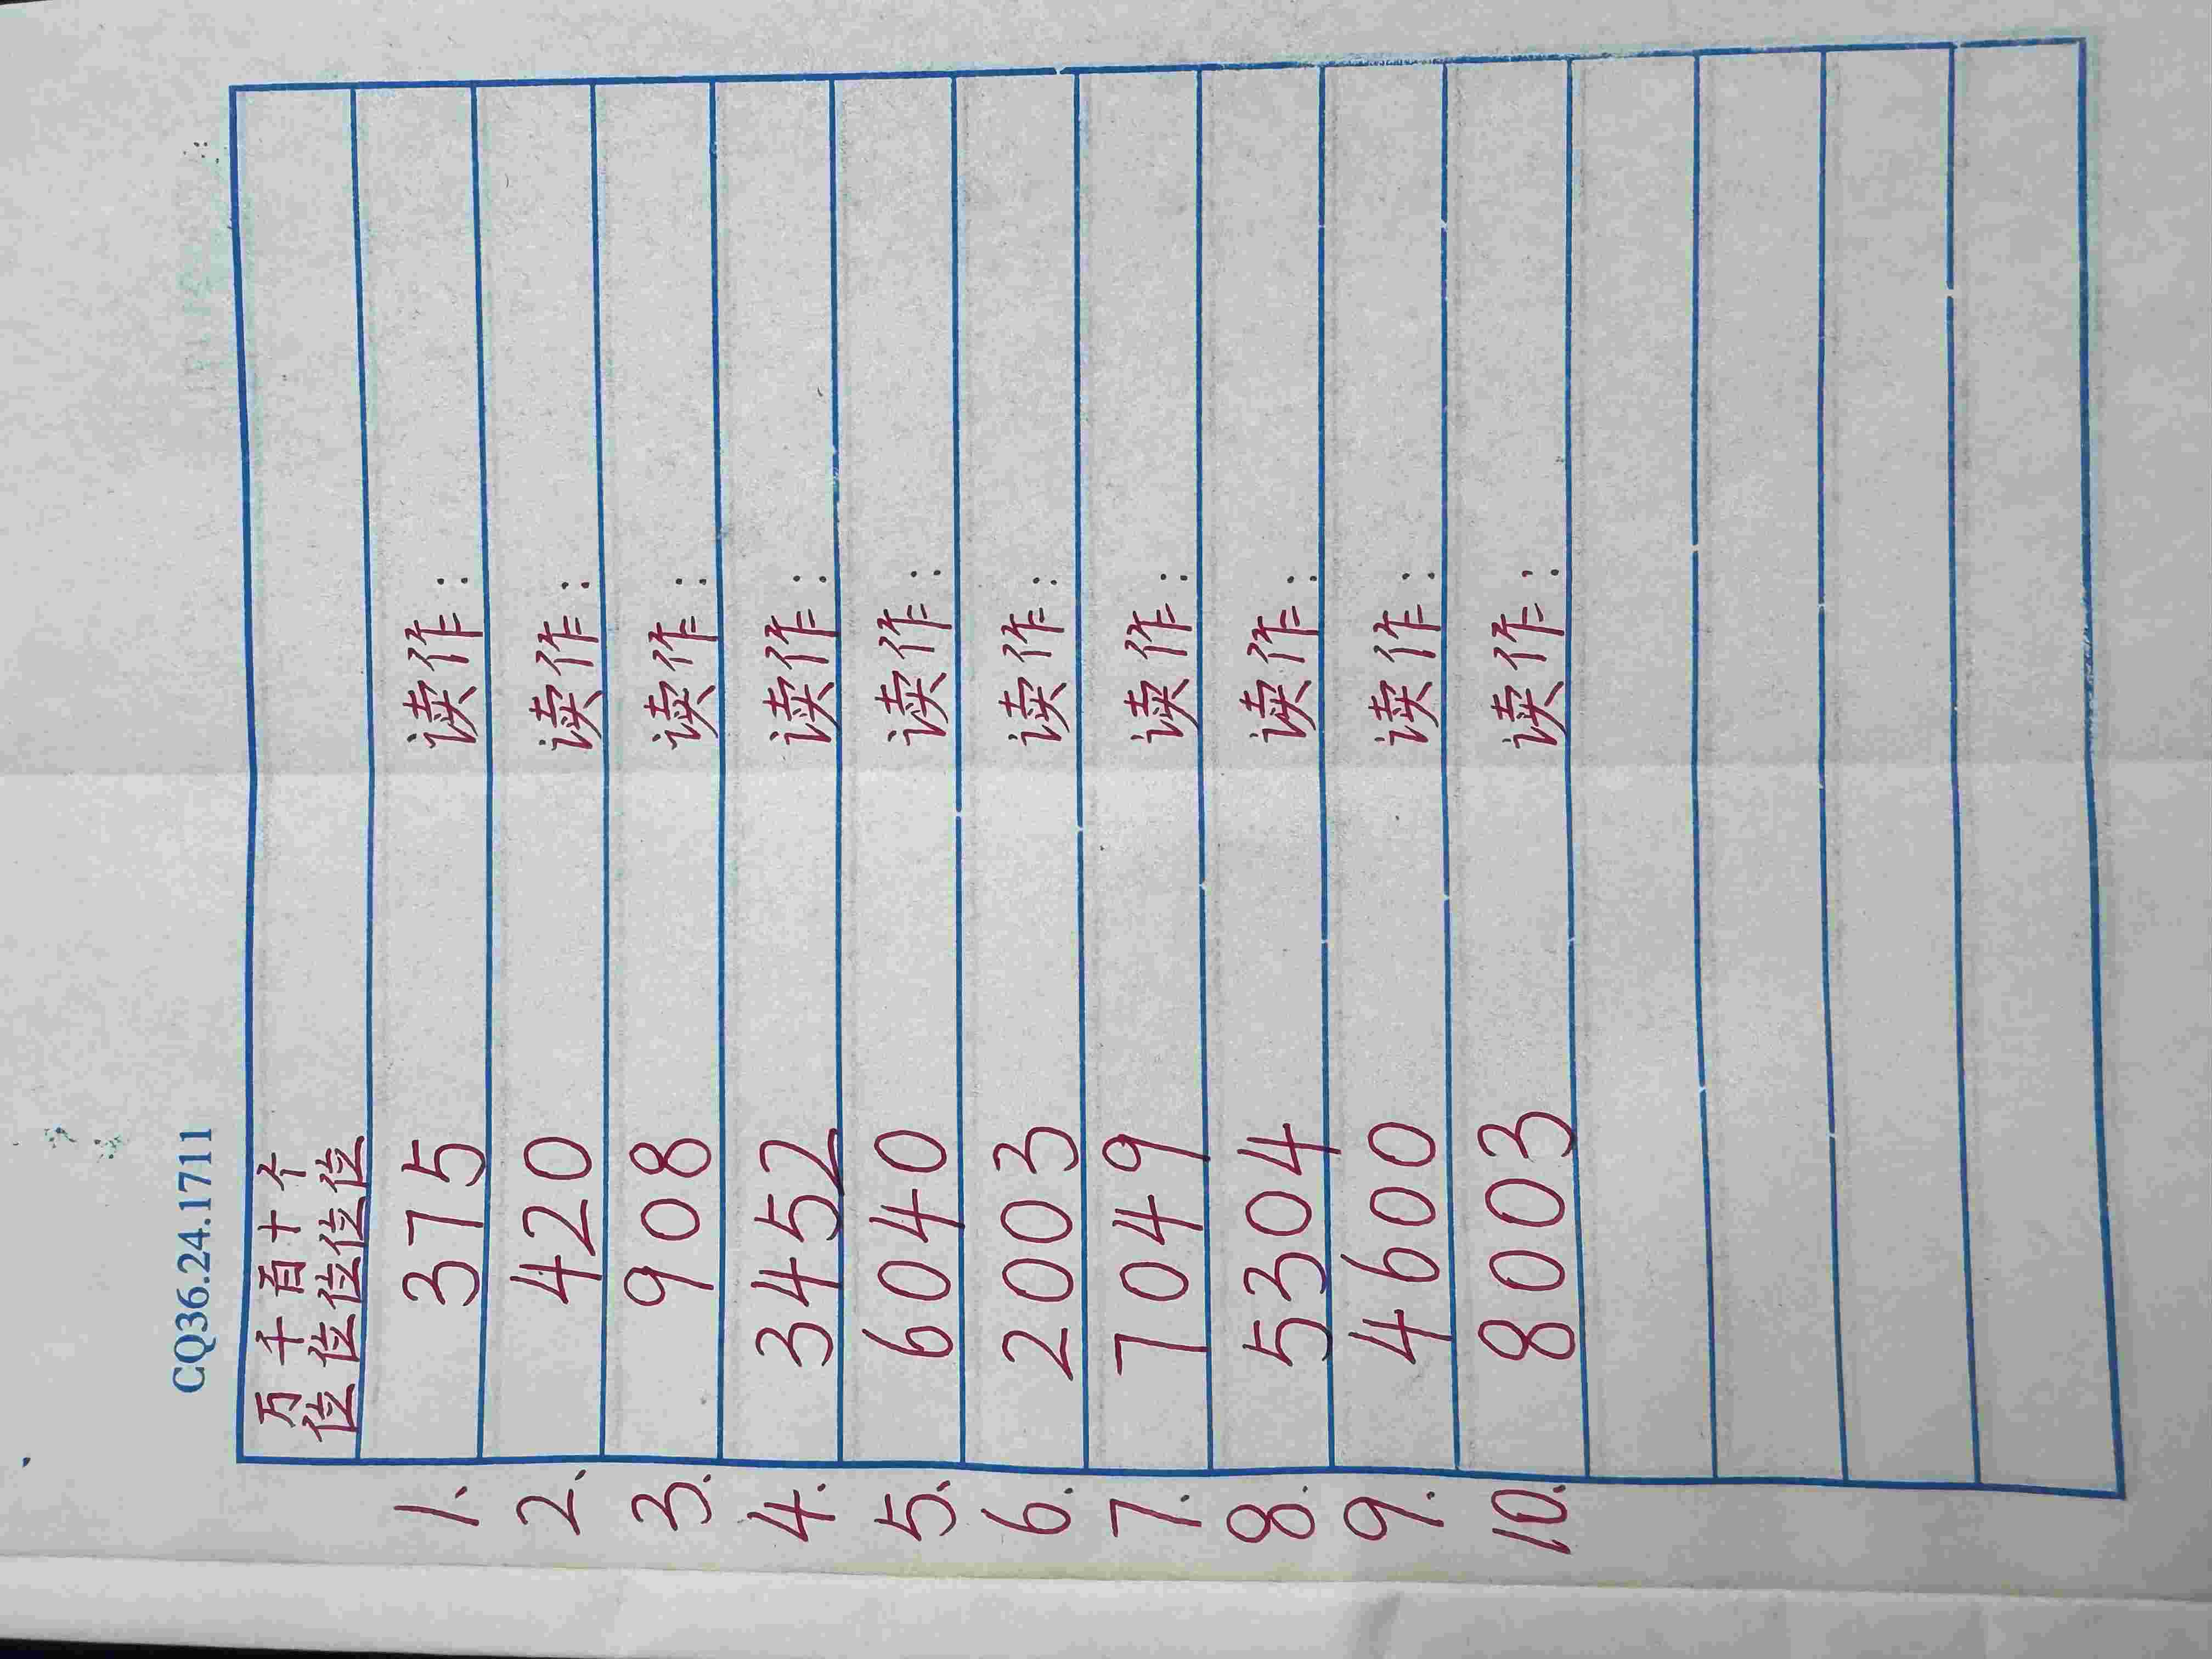 CQ36.24.1711
万千百十个
位位位位位
1、 375 读作：
2、 420 读作：
3、 908 读作：
4. 3452 读作：
5、 6040 读作：
6. 2003 读作：
7. 7049 读作：
8. 5304 读作：
9. 4600 读作：
10. 8003 读作：